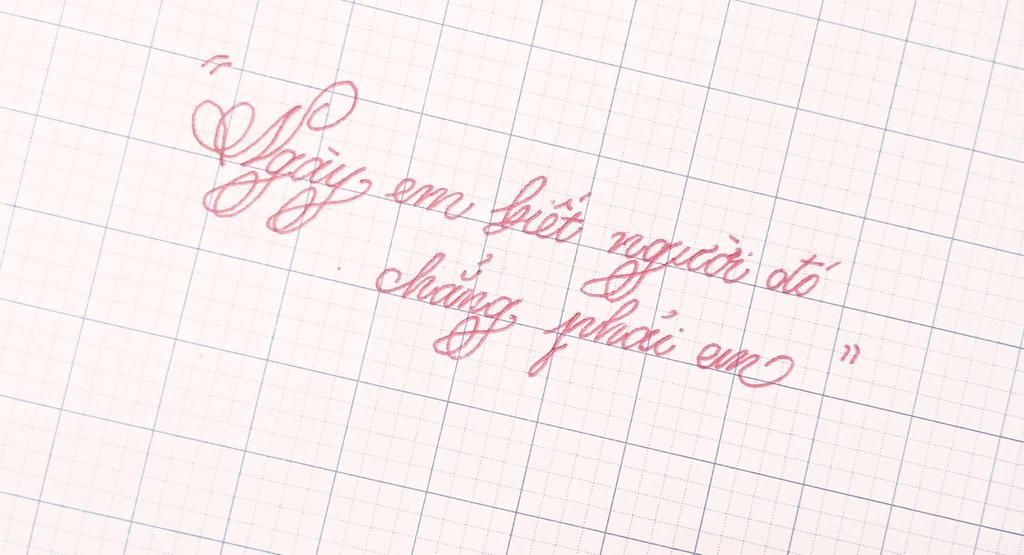 "Ngày em biết người đó
chẳng phải em"